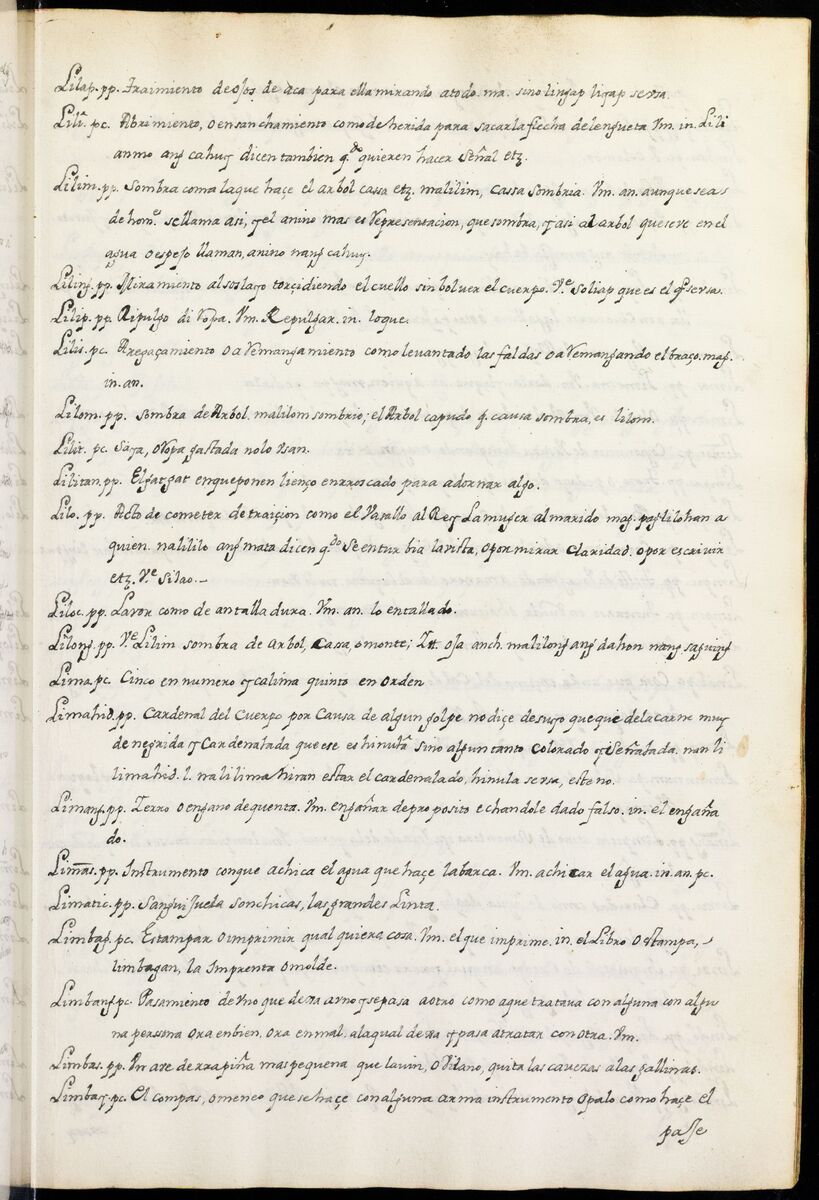 Lilap. pp. Traimiento de ojos de aca para ella mirando atodo. ma. sino lingap ligap sersa.
Lili. pc. Abrimiento, o ensanchamiento como de herida para sacar la flecha de lengueta Vm. in. Lili
anmo ang cahuy dicen tambien q.do quieren hacer señal etz.
Lilim. pp. Sombra como la que haçe el arbol cassa etz. malilim, cassa sombria. Vm. an. aunque sea s
de hom.e se llama asi, y el anino mas es Representacion, que sombra, y asi al arbol que se ve en el
agua o espejo llaman, anino nang cahuy.
Liling. pp. Miramiento al soslayo torçidiendo el cuello sin bolver el cuerpo. V.e Soliap que es el q.e sersa.
Lilip. pp. Ripulgo di Ropa. Vm. Repulgar. in. loque.
Lilis. pc. Aregaçamiento o aRemangamiento como levantado las faldas o aRemangando el braço. mag.
in. an.
Lilom. pp. Sombra de Arbol. malilom sombrio; el Arbol capudo q. causa sombra, es lilom.
Lilit. pc. Saya, o Ropa gastada nolo Vsan.
Lilitan. pp. El gatgat enque ponen lienço enrroscado para adornar algo.
Lilo. pp. Acto de cometer de traiçion como el Vasallo al Rey La muger al marido mag. paglilohan a
quien. nalililo ang mata dicen q.do Se entur bia la vista, o por mirar Claridad. o por escrivir
etz. V.e Silao.-
Liloc. pp. Lavor como de antalladura. Vm. an. lo entallado.
Lilong. pp. V.e Lilim sombra de arbol, Cassa, o monte; Itt. oja anch. malilong ang dahon nang saguing
Lima. pc. Cinco en numero y calima quinto en orden
Limahid. pp. Cardenal del Cuerpo por Causa de algun golpe no diçe de suyo que que de la carne muy
de negrida y Cardenalada que ese es hinula sino algun tanto Colorado y Señalada. nan li
limahid. l. nalilima hiran estar el cardenalado, hinula sersa, este no.
Limang. pp. Zerro o engano de quenta. Vm. engañar de pro posito echandole dado falso. in. el engaña
do.
Limas. pp. Instrumento conque achica el agua que haçe la barca. Vm. achicar el agua. in. an. pc.
Limatic. pp. Sanguijuela son chicas, las grandes Linta.
Limbag. pc. Estampar o imprimir qual quiera cosa. Vm. el que imprime. in. el Libro o stampa,
limbagan, la Imprenta o molde.
Limbang. pc. Pasamiento de Vno que dexa a Vno y se pasa a otro como aque tratava con alguna con algu
na persona ora en bien, ora en mal. a la qual dexa y pasa a tratar con otra. Vm.
Limbas. pp. Vn ave de rrapiña mas pequena que lauin, o Vilano, quita las cavezas a las gallinas.
Limbay. pc. El compas, o meneo que se haçe con alguna arma instrumento o palo como haçe el
passe